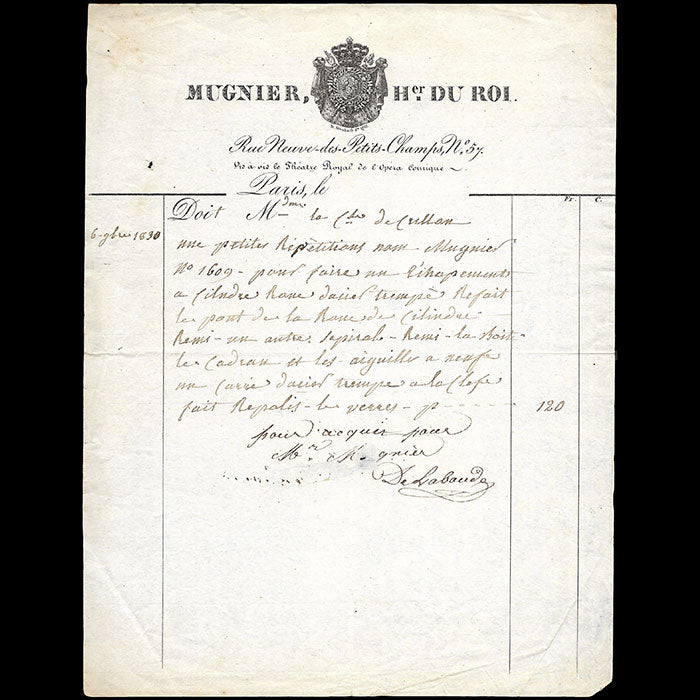 MUGNIER, Her DU ROI.
Rue Neuve-des-Petits-Champs, No. 57.
Vis à vis le Théatre Royal de l'Opera Comique
Paris, le
Fr. C.
Doit Mdme la Ctsse de Crillon
6 9bre 1830
une petites Répétitions nom Mugnier
No 1609 - pour faire un Echapement
a Cilindre Roue d'acier trempé Refait
le pont de la Roue de Cilindre
Remi - un autre Spiral - Remi - la Boit
le Cadran et les aiguille a neufe
un Carré d'acier trempe a la Clefe
fait Repolis - le verres - p - - - - 120
pour acquit pour
Mr. Mugnier
De Labaude